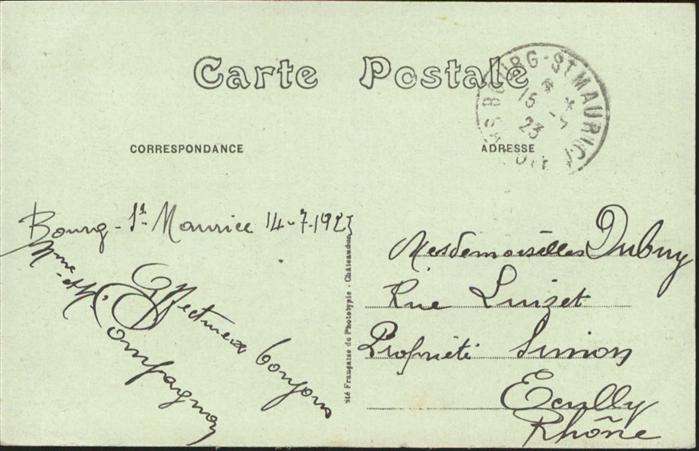 Carte Postale
CORRESPONDANCE
ADRESSE
BOURG-ST MAURICE
15-7
23
Bourg-St Maurice 14-7-1923
Affectueux bonjour
Mme et M. Compagnon
Mesdemoiselles Dubuy
Rue Luizet
Propriété Simon
Ecully
Rhône
Sté Française de Phototypie - Châteaudun